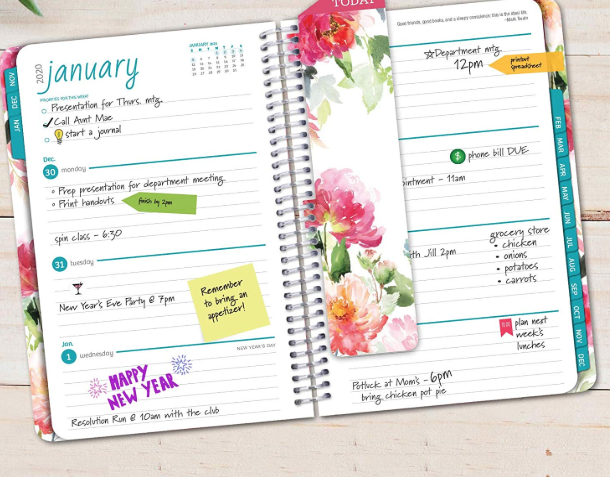 TODAY
2020
january
JANUARY 2020
PRIORITIES FOR THIS WEEK
Presentation for Thurs. mtg.
Call Aunt Mae
start a journal
Dec.
30 monday
Prep presentation for department meeting
Print handouts
finish by 2pm
spin class - 6:30
31 tuesday
New Year's Eve Party @ 7pm
Remember
to bring an
appetizer!
Jan.
1 wednesday
NEW YEAR'S DAY
HAPPY
NEW YEAR
Resolution Run @ 10am with the club
Good friends, good books, and a sleepy conscience: this is the ideal life.
-Mark Twain
Department mtg.
12pm
printout
spreadsheet
$ phone bill DUE
intment - 11am
th Jill 2pm
grocery store
• chicken
• onions
• potatoes
• carrots
plan next
week's
lunches
Potluck at Mom's - 6pm
bring chicken pot pie
NOV
DEC
JAN
FEB
MAR
APR
MAY
JUN
JUL
AUG
SEP
OCT
NOV
DEC